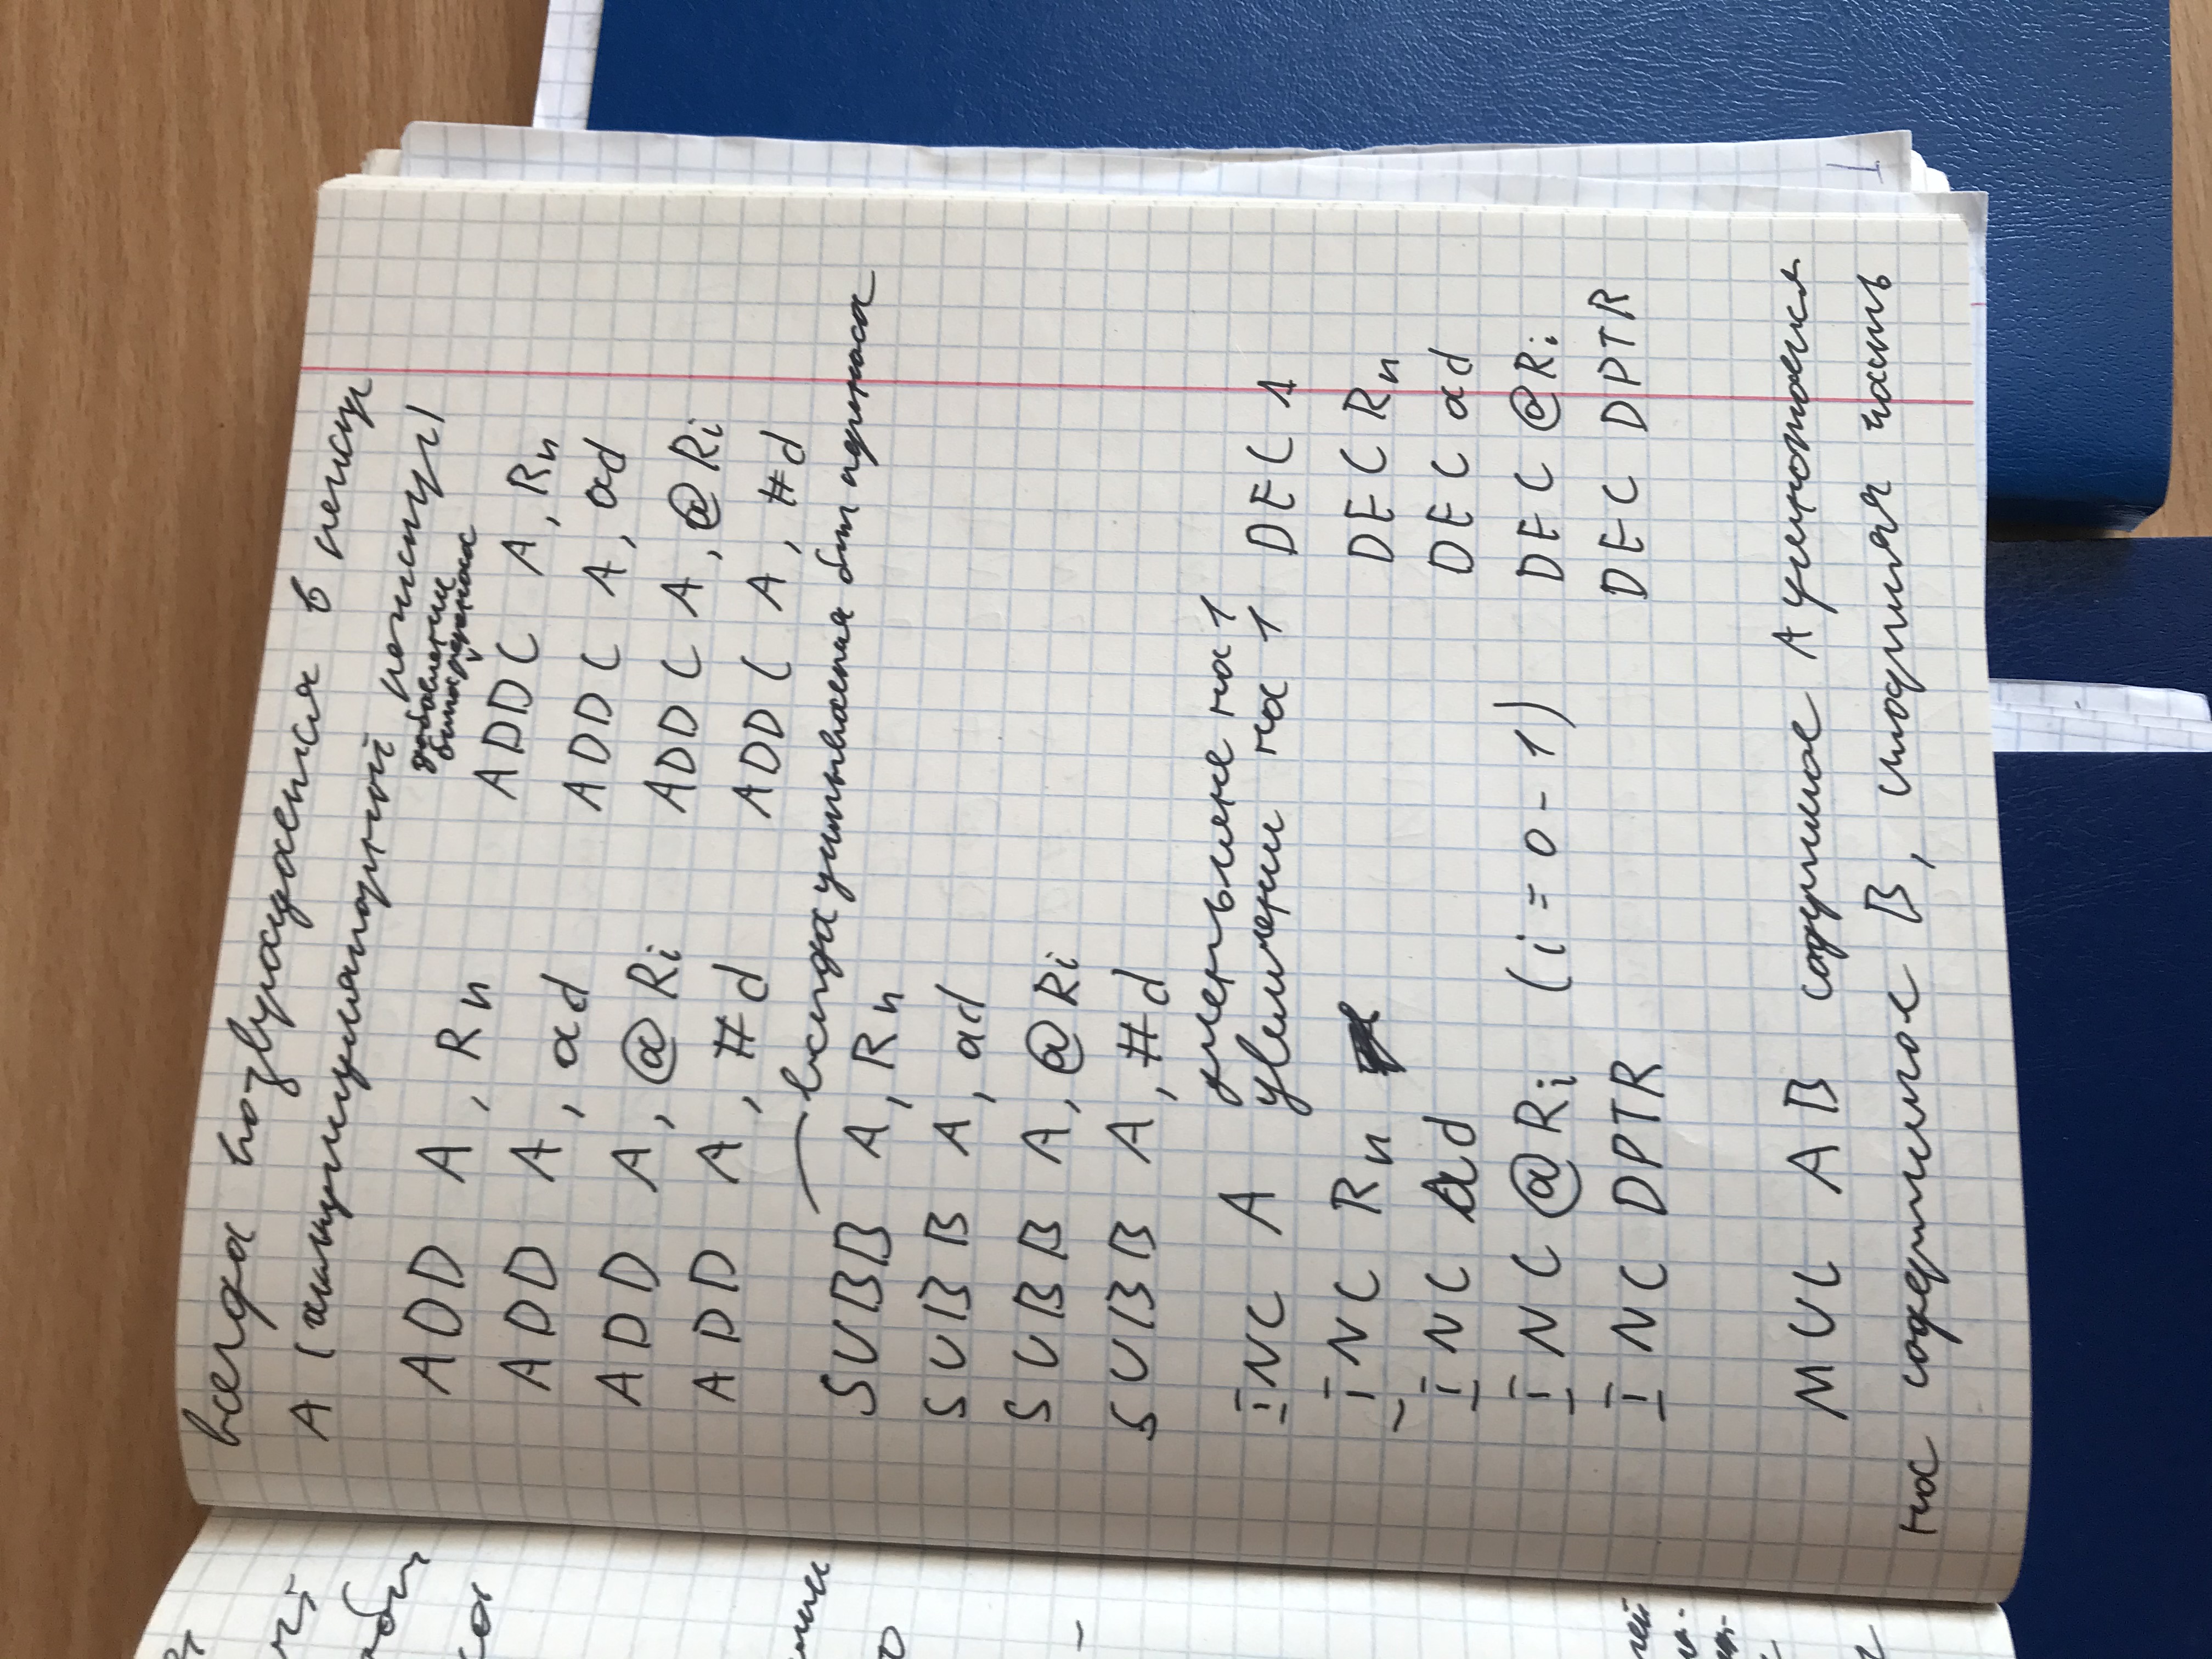 всегда возвращается в регистр
A (аккумуляторный регистр)
добавление
бита переноса
ADD A, Rn ADDC A, Rn
ADD A, ad ADDC A, ad
ADD A, @Ri ADDC A, @Ri
ADD A, #d ADDC A, #d
всегда учитывается бит переноса
SUBB A, Rn
SUBB A, ad
SUBB A, @Ri
SUBB A, #d
уменьшение на 1
INC A увеличении на 1 DEC A
INC Rn DEC Rn
INC ad DEC ad
INC @Ri (i = 0 - 1) DEC @Ri
INC DPTR DEC DPTR
MUL AB содержимое A умножается
на содержимое B, часть